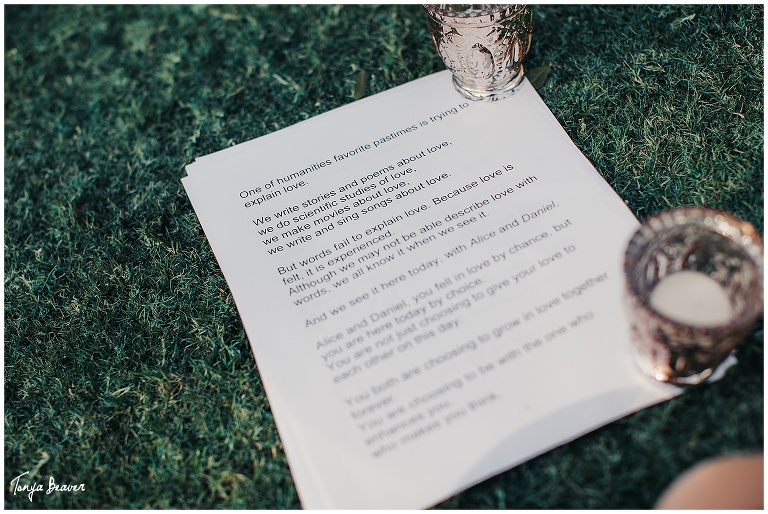 One of humanities favorite pastimes is trying to
explain love.
We write stories and poems about love,
we do scientific studies of love,
we make movies about love,
we write and sing songs about love.
But words fail to explain love. Because love is
felt, it is experienced.
Although we may not be able describe love with
words, we all know it when we see it.
And we see it here today, with Alice and Daniel.
Alice and Daniel, you fell in love by chance, but
you are here today by choice.
You are not just choosing to give your love to
each other on this day.
You both are choosing to grow in love together
forever.
You are choosing to be with the one who
enhances you,
who makes you think,
Tonya Beaver